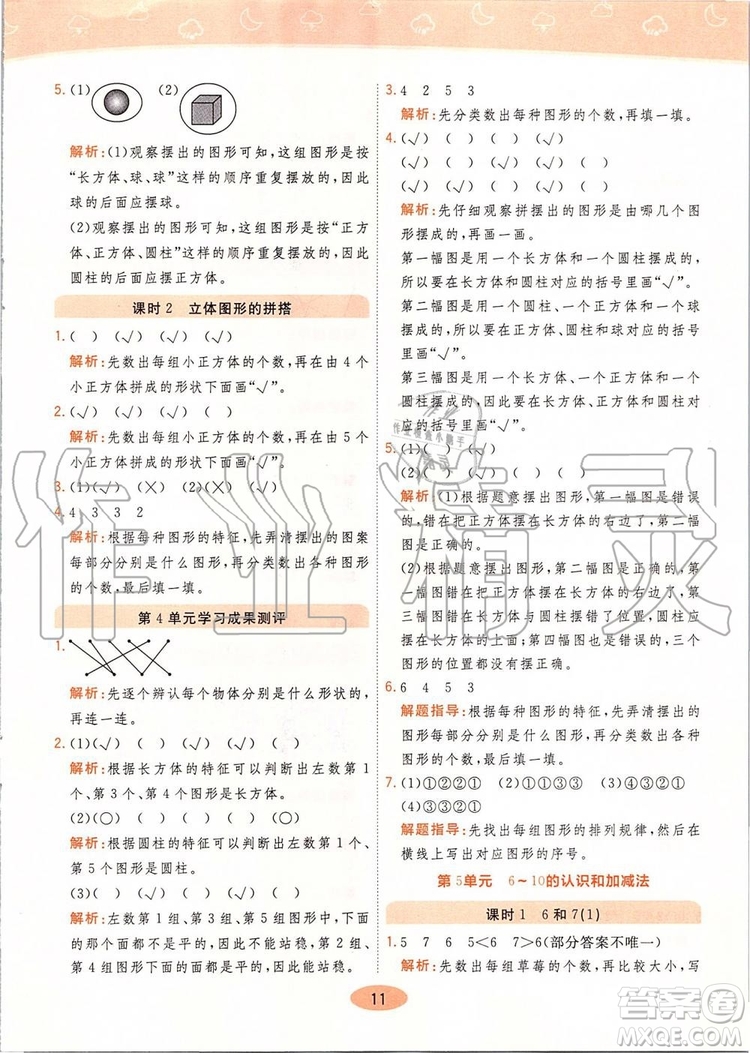 5. (1) (2)
解析:(1)观察摆出的图形可知，这组图形是按
“长方体、球、球”这样的顺序重复摆放的，因此
球的后面应摆球。
(2)观察摆出的图形可知，这组图形是按“正方
体、正方体、圆柱”这样的顺序重复摆放的，因此
圆柱的后面应摆正方体。
课时2 立体图形的拼搭
1. ( ) (√) ( ) (√)
解析:先数出每组小正方体的个数，再在由 4 个
小正方体拼成的形状下面画“√”。
2. (√) (√) ( ) (√)
解析:先数出每组小正方体的个数，再在由 5 个
小正方体拼成的形状下面画“√”。
3. (√) (×) (√) (×)
4. 4 3 3 2
解析:根据每种图形的特征，先弄清摆出的图案
每部分分别是什么图形，再分类数出每种图形
的个数。
第4单元学习成果测评
1.
解析:先逐个辨认每个物体分别是什么形状的，
再连一连。
2. (1)(√) ( ) (√) (√) ( )
解析:根据长方体的特征可以判断出左数第 1
个、第 3 个和第 4 个图形是长方体。
(2)(○) ( ) ( ) ( ) (○)
解析:根据圆柱的特征可以判断出左数第 1 个、
第 5 个图形是圆柱。
(3)( ) (√) ( ) (√)
解析:左数第 1 组、第 3 组图形，由于放在下面
的那个面都不是平的，因此不能站稳，第 2 组、
第 4 组下面的面都是平的，因此能站稳。
3. 4 2 5 3
解析:先分类数出每种图形的个数，再填一填。
4. (√) ( ) (√) ( )
(√) (√) ( ) (√)
(√) ( ) (√) (√)
解析:先仔细观察拼摆出的图形是由哪几个图
形摆成的，再画一画。
第一幅图是用一个长方体和一个圆柱摆成的，
所以要在长方体和圆柱对应的括号里画“√”。
第二幅图是用一个长方体、一个圆柱和一个球
摆成的，所以要在长方体、圆柱和球对应的括号
里画“√”。
第三幅图是用一个长方体、一个正方体和一个
圆柱摆成的，所以要在长方体、正方体和圆柱对
应的括号里画“√”。
5. (1)( ) (√)
(2)( ) (√) ( ) ( )
解析:(1)根据题意摆出的图形，第一幅图是错误
的，错在把正方体摆在长方体的右边了，第二幅
图是正确的。
(2)根据题意摆出的图形，第二幅图是正确的，
第一幅图是错误的，错在把长方体摆错位置，第
三幅图错在长方体与圆柱摆反位置了，圆柱应
摆在长方体的右边，第四幅图也是错误的，三个
图形的位置都没有摆正确。
6. 6 4 5 3
解题指导:根据每种图形的特征，先弄清摆出的
图形每部分分别是什么图形，再分类数出每种
图形的个数。
7. (1)①②②① (2)①①③③ (3)①②②①
(4)③②②①
解题指导:先找出每组图形的排列规律，然后在
横线上写出对应图形的序号。
第5单元 6～10的认识和加减法
课时1 6和7(1)
1. 5 7 6 5＜6 7＞6(部分答案不唯一)
解析:先数出每组草莓的个数，再比较大小，写
11
作业精灵
答案圈
MXQE.COM